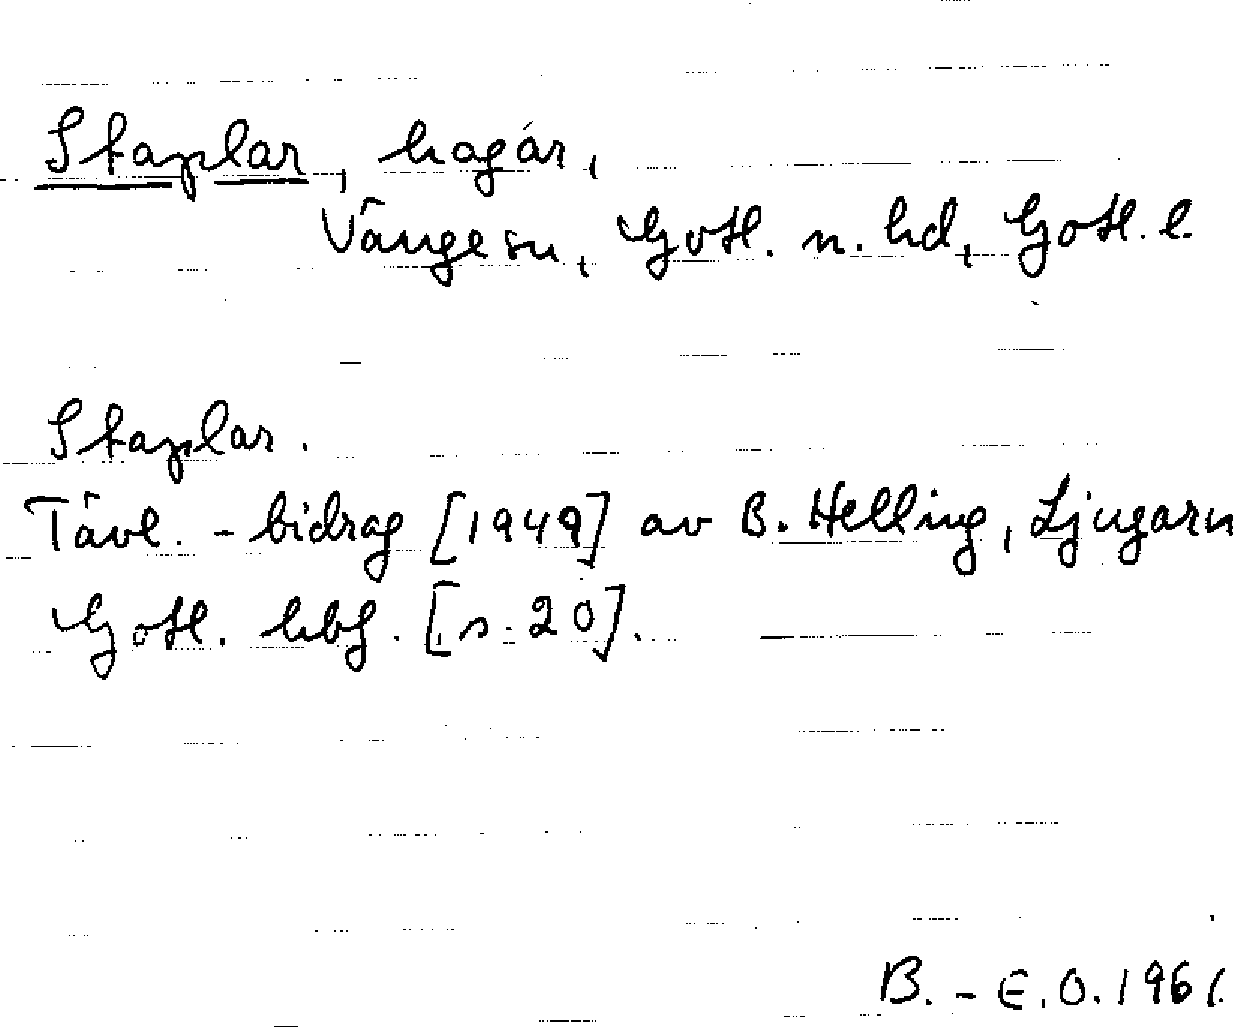 Staplar, hagar,
Vänge sn, Gotl. n. hd, Gotl. l.
Staplar.
Tävl. - bidrag [1949] av B. Helling, Ljugarn
Gotl. hbf. [s. 20].
B. - E. O. 1961.